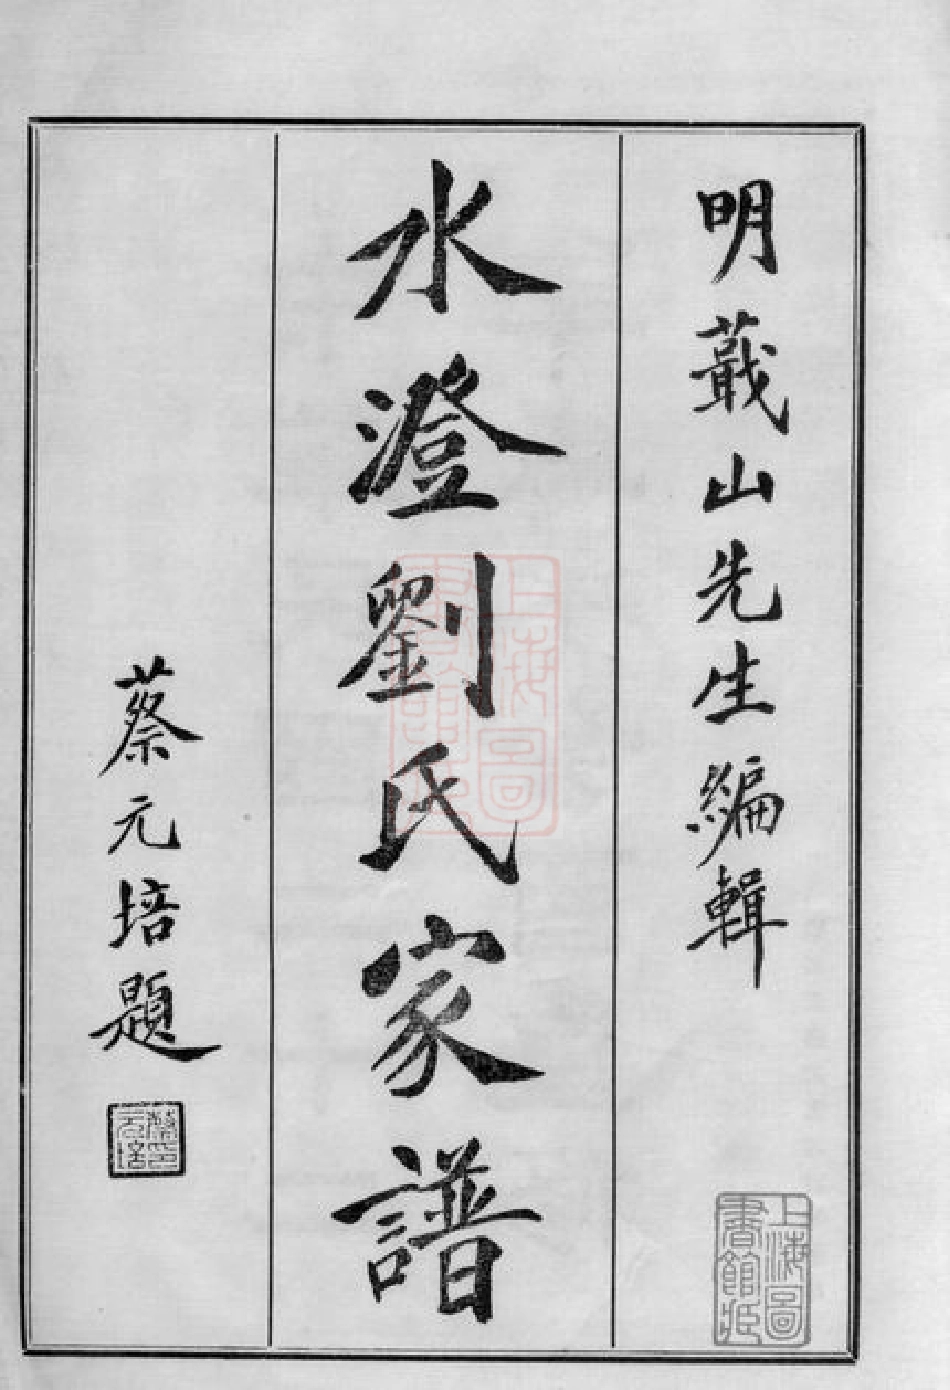 明蕺山先生編輯
水澄劉氏家譜
蔡元培題
蔡元培印
上海圖書館藏
上海圖書館